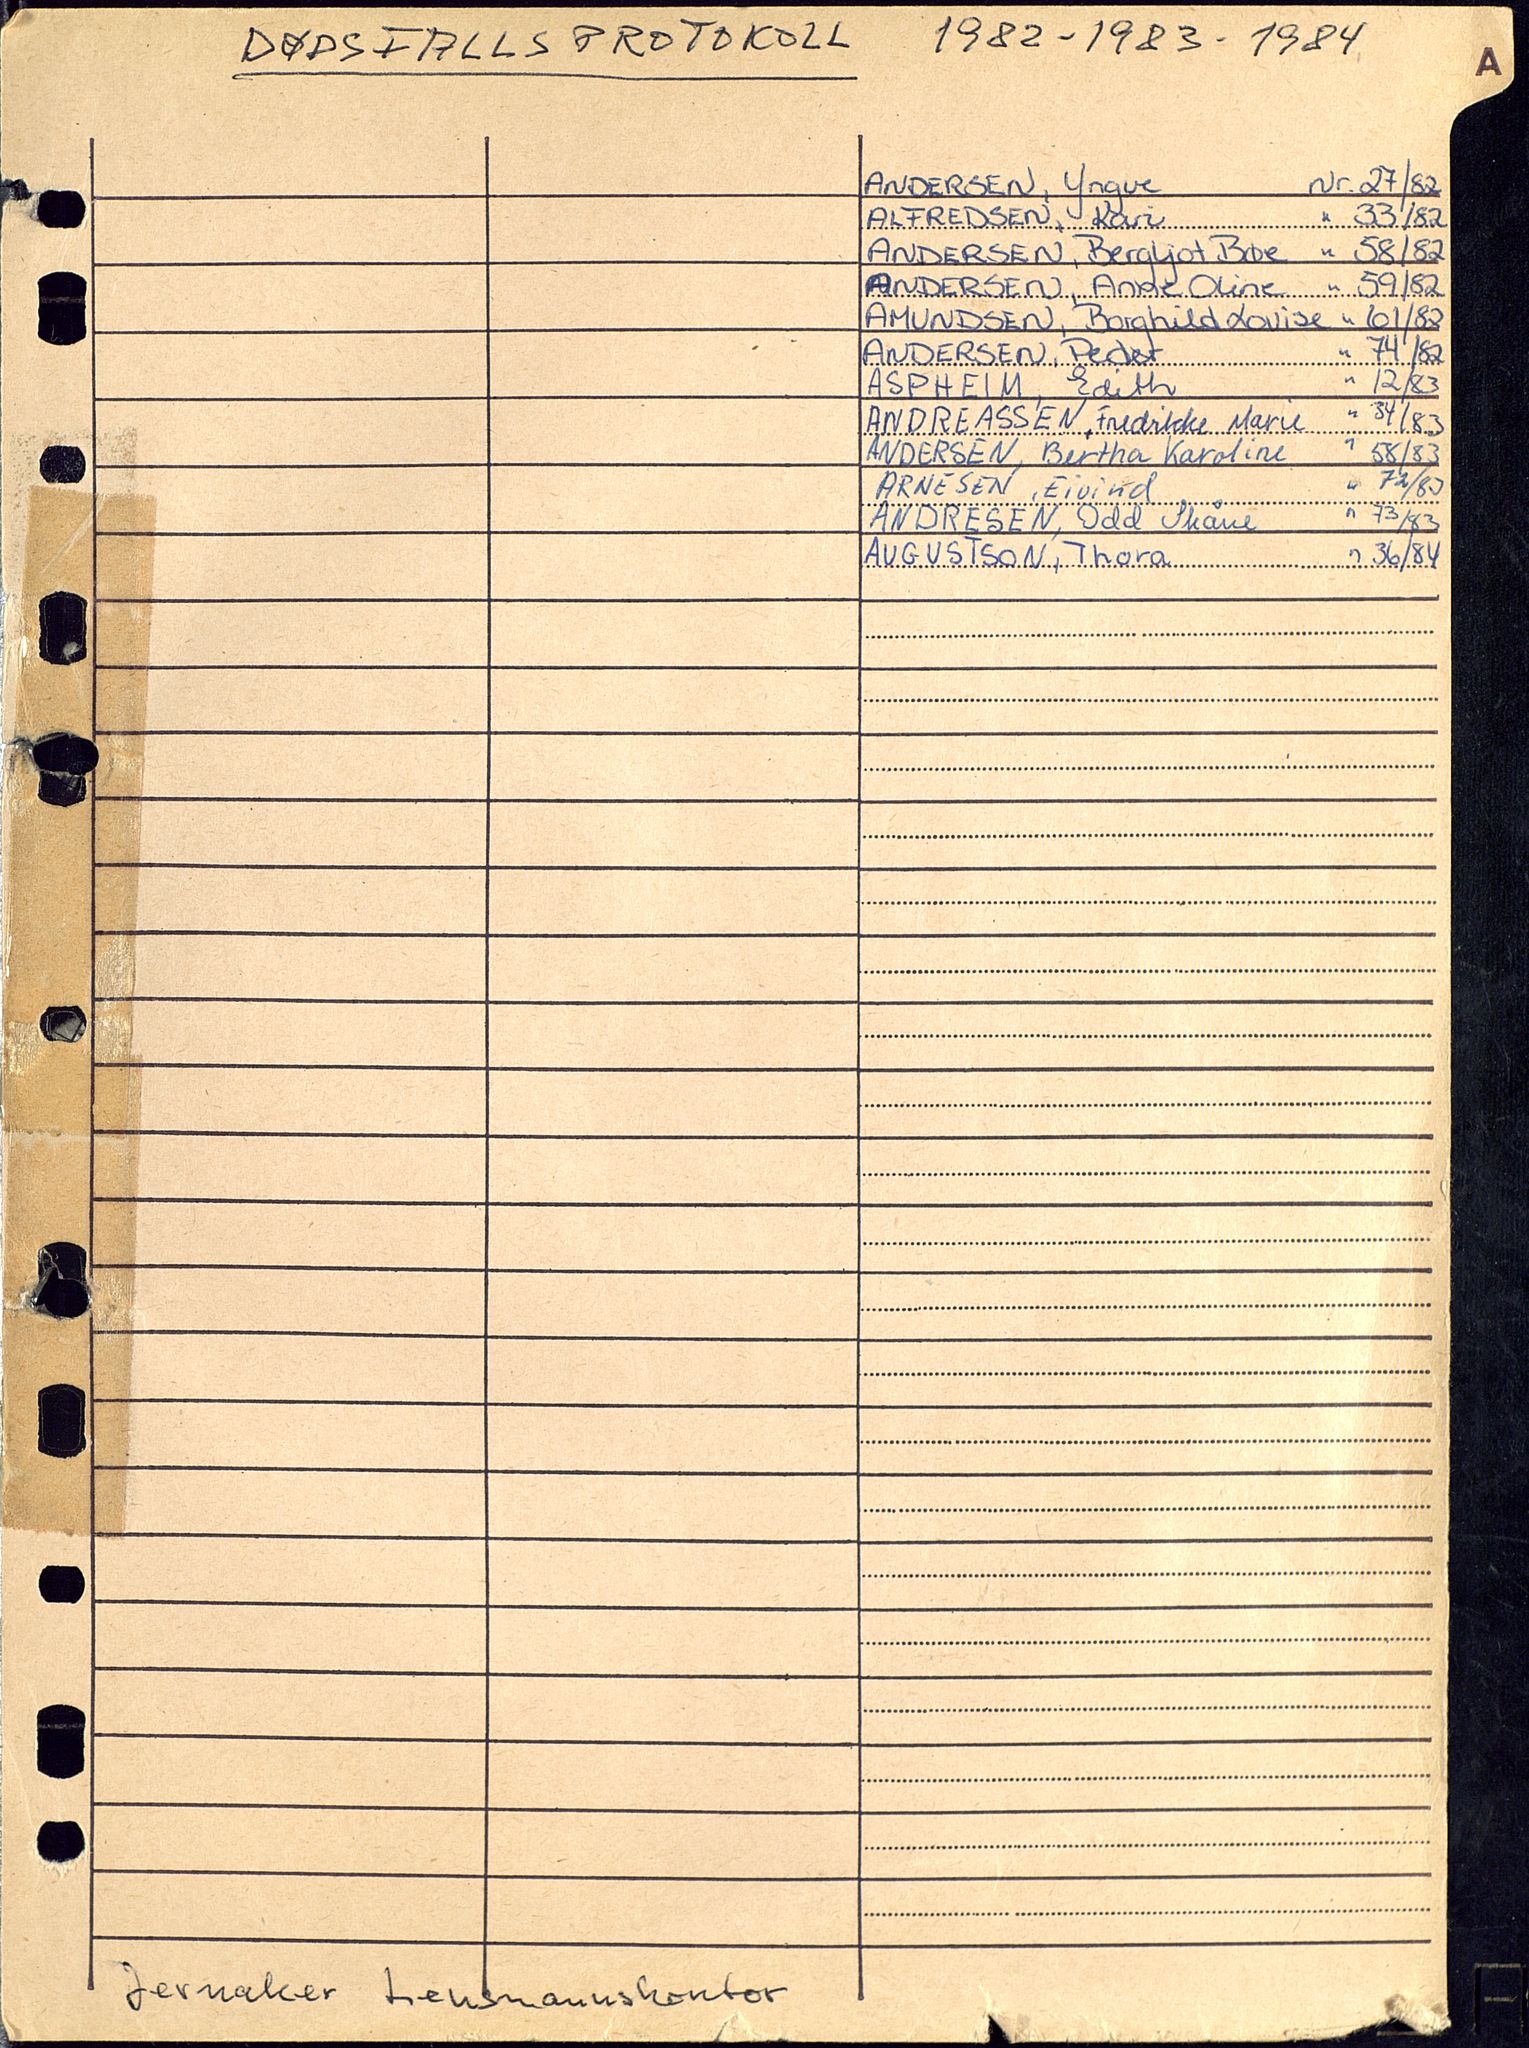 DØDSFALLSPROTOKOLL 1982-1983-1984
A
ANDERSEN, Yngve Nr. 27/82
ALFREDSEN, Kari " 33/82
ANDERSEN, Bergljot Boe " 58/82
ANDERSEN, Anne Oline " 59/82
AMUNDSEN, Borghild Lovise " 61/82
ANDERSEN, Peder " 74/82
ASPHEIM, Edith " 12/83
ANDREASSEN, Fredrikke Marie " 34/83
ANDERSEN, Bertha Karoline " 58/83
ARNESEN, Eivind " 72/83
ANDRESEN, Odd Skåne " 73/83
AUGUSTSON, Thora " 36/84
Jernaker Lensmannskontor